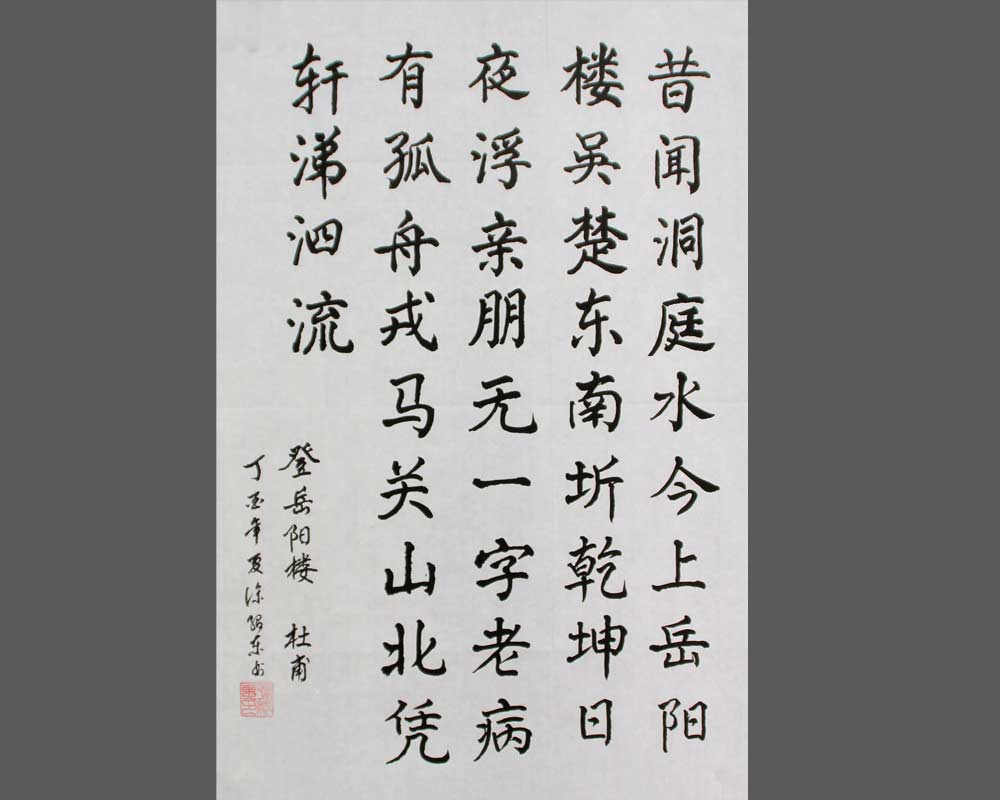 昔闻洞庭水今上岳阳
楼吴楚东南圻乾坤日
夜浮亲朋无一字老病
有孤舟戎马关山北凭
轩涕泗流
登岳阳楼 杜甫
丁酉年夏徐